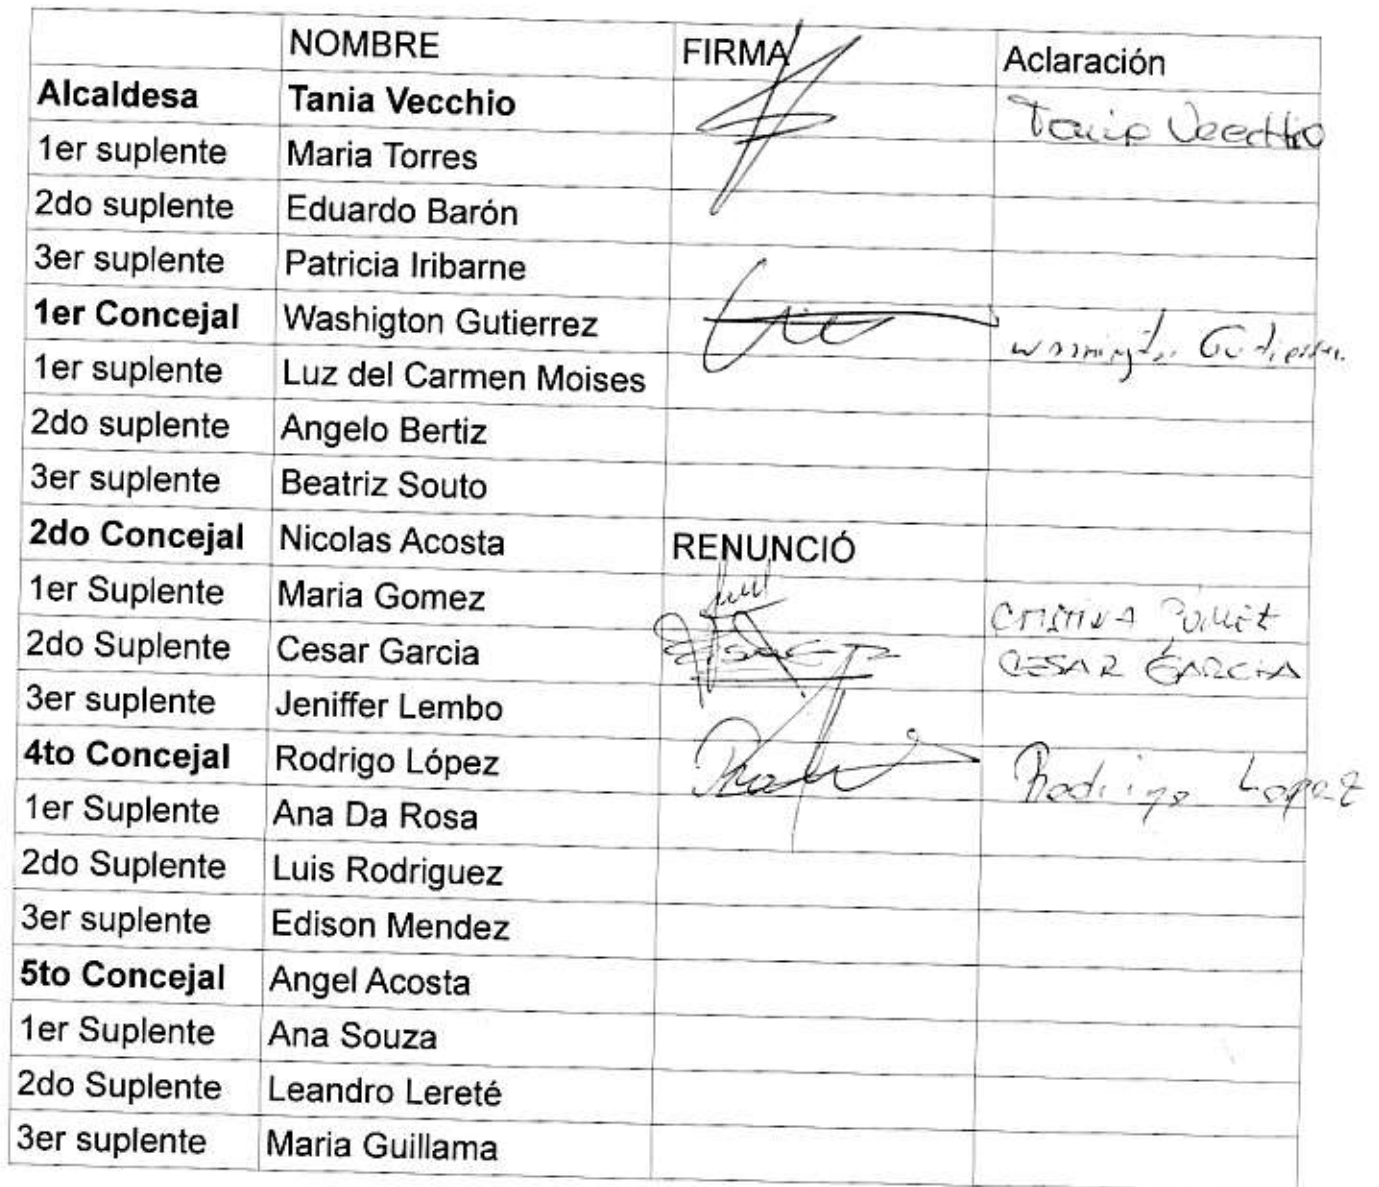 NOMBRE FIRMA Aclaración
Alcaldesa Tania Vecchio Tania Vecchio
1er suplente Maria Torres
2do suplente Eduardo Barón
3er suplente Patricia Iribarne
1er Concejal Washigton Gutierrez Gutierrez
1er suplente Luz del Carmen Moises
2do suplente Angelo Bertiz
3er suplente Beatriz Souto
2do Concejal Nicolas Acosta RENUNCIÓ
1er Suplente Maria Gomez
2do Suplente Cesar Garcia CESAR GARCIA
3er suplente Jeniffer Lembo
4to Concejal Rodrigo López Rodrigo Lopez
1er Suplente Ana Da Rosa
2do Suplente Luis Rodriguez
3er suplente Edison Mendez
5to Concejal Angel Acosta
1er Suplente Ana Souza
2do Suplente Leandro Lereté
3er suplente Maria Guillama